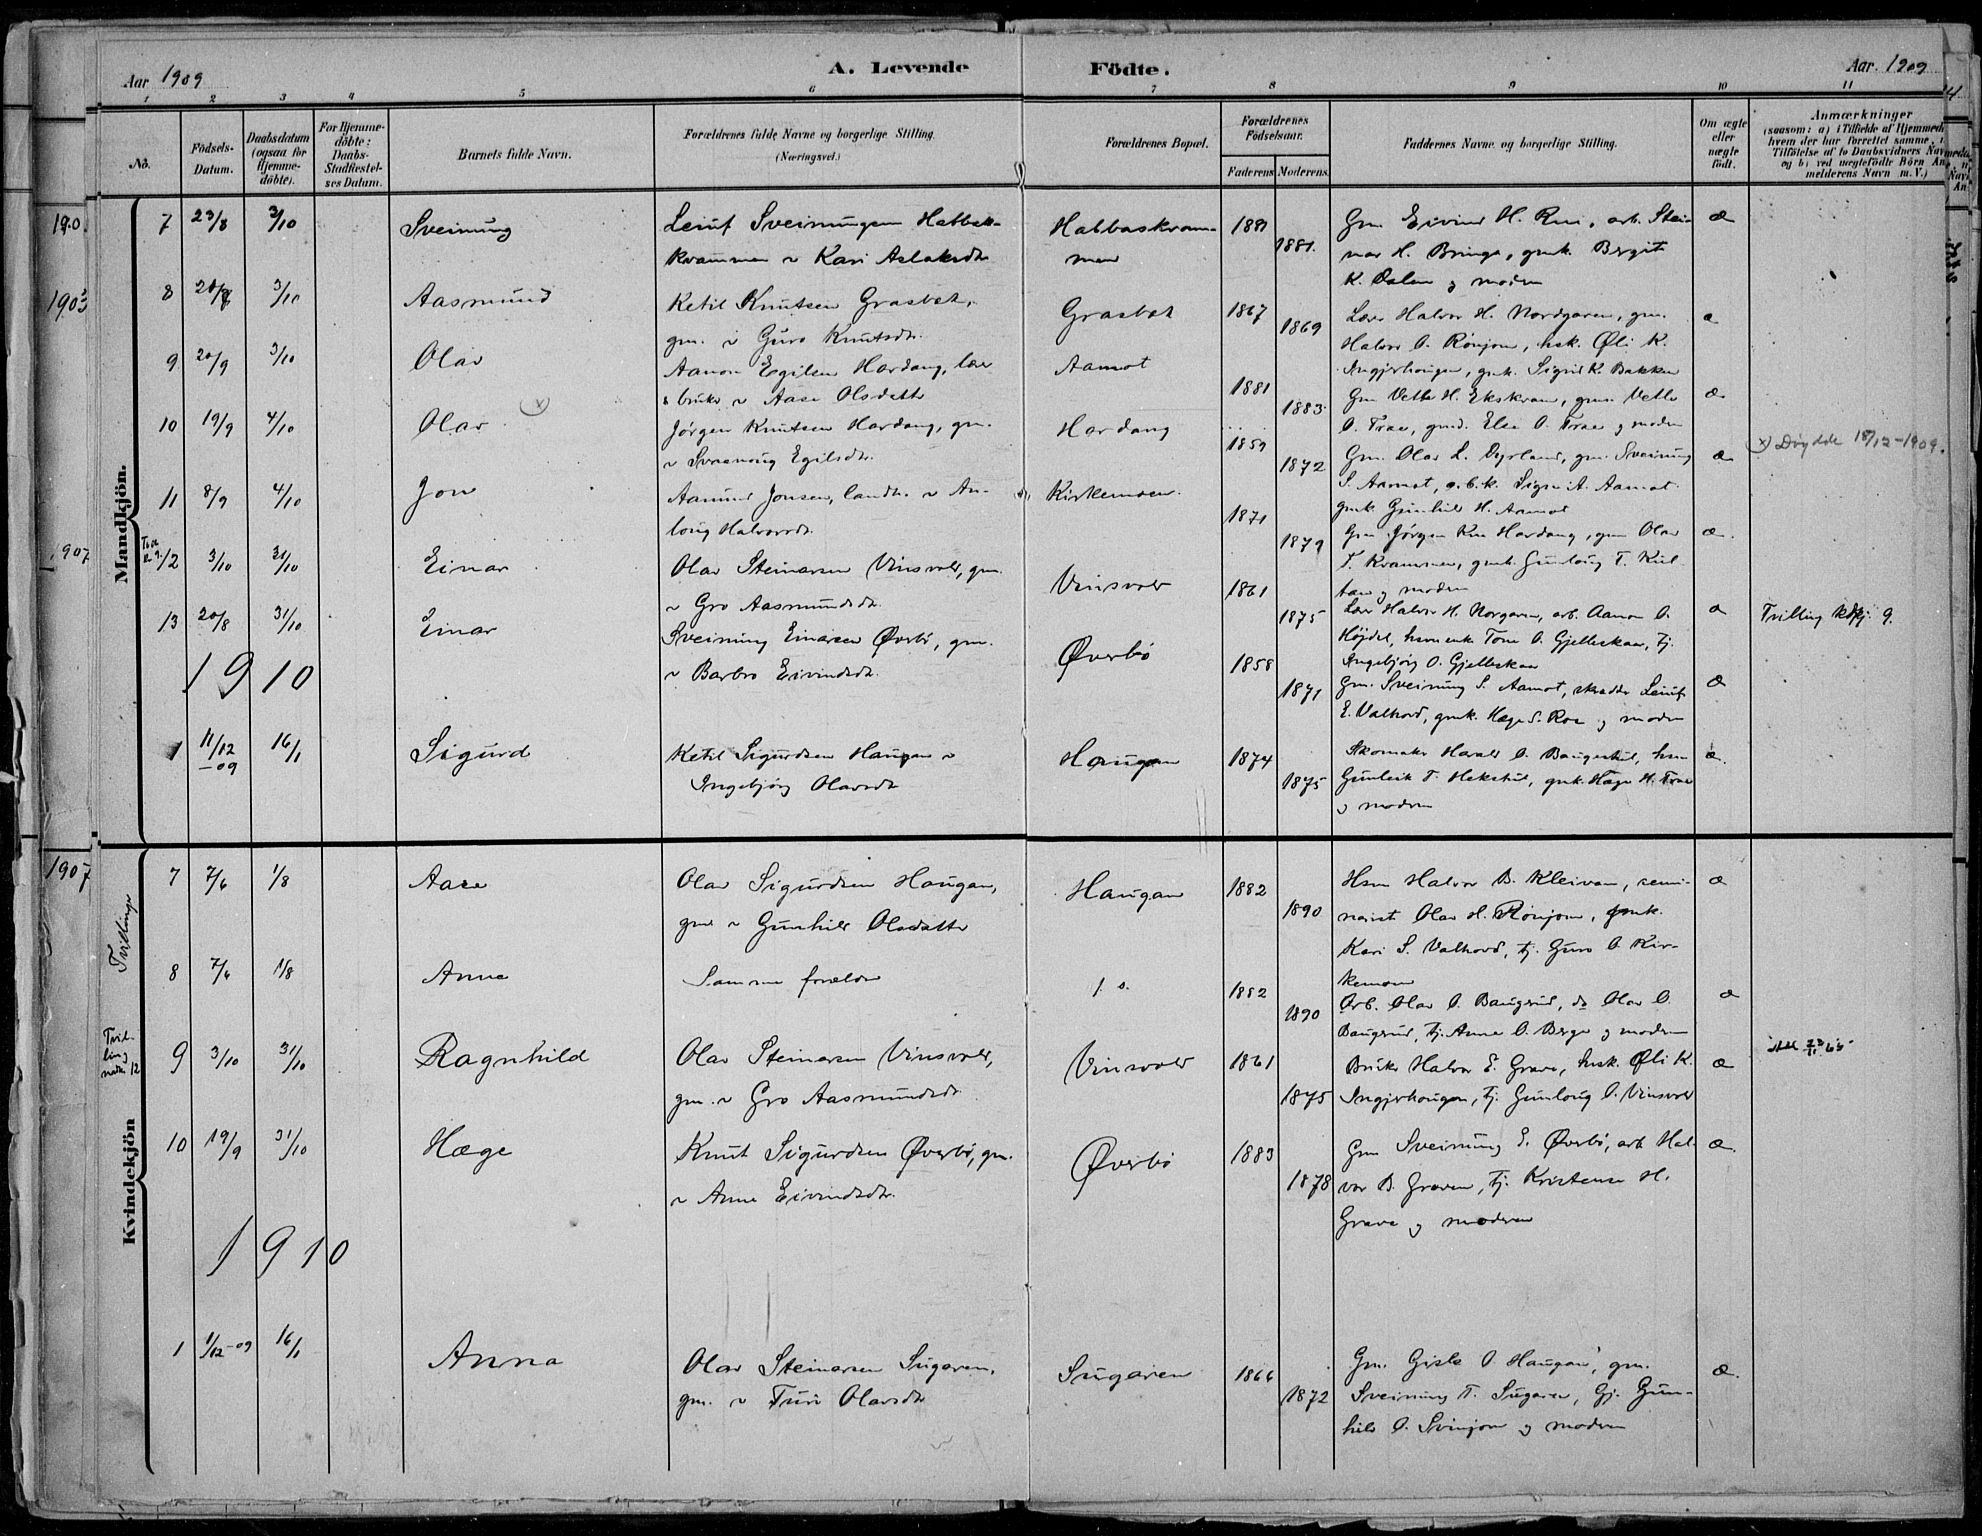 Aar 1909
A. Levende Födte.
Aar. 1909
1 2 3 4 5 6 7 8 9 10 11
No.
Födsels-Datum.
Daabsdatum (ogsaa for Hjemme-döbte).
For Hjemme-döbte: Daabs-Stadfæstel-ses Datum.
Barnets fulde Navn.
Forældrenes fulde Navne og borgerlige Stilling. (Næringsvei.)
Forældrenes Bopæl.
Forældrenes Födselsaar.
Faderens Moderens
Faddernes Navne og borgerlige Stilling.
Om ægte eller uægte födt.
Anmærkninger
(saasom: a) i Tilfælde af Hjemmed
hvem der har forrettet samme, i
Tilfölelse af to Daabsvidners Nav
og b) ved uægtefödte Börn An
melderens Navn m. V.)
Mandkjön.
7 23/8 3/10 Sveinung
Leiuf Sveinungsen Habbas-
krammen & Kari Aslaksdtr.
Habbaskram-
men
1881 1881.
Gm. Eivind H. Rui, arb. Stei-
nar H. Bringa, gmk. Bergit
K. Dalen og modern
æ
8 3/10 Aasmund
Ketil Knutsen Grasbek,
gm. & Guro Knutsdtr.
Grasbek
1867 1869
Lærer Halvor H. Nordgaren, gm.
Halvor O. Rönjom, hsk. Øli K.
Ingjerhougen, gmk. Sigrid K. Bakken
æ
9 20/9 3/10 Olav
Aanon Egilsen Hardang, lær
& bruker & Aase Olsdatter
Aamot
1881 1883.
Gm Vetle H. Ekskram, gm. Vetle
O. Trae, gmd. Else O. Trae og modern
æ
10 19/9 4/10 Olav (x)
Jörgen Knutsen Hardang, gm.
& Svanaug Egilsdtr.
Hardang
1859 1872
Gm. Olav L. Dyrland, gm. Sveinung
S. Aamot, Signe A. Aamot
gmk Gunhild H. Aamot
æ
x) Döydde 18/12-1909.
11 8/9 4/10 Jon
Aamund Jonsen, landh. & An-
laug Halvorsdtr.
Kirkemoen.
1871 1879
Gm Jörgen Kn. Hardang, gm Olav
T. Krammen, gmk. Gunlaug T. Kiel-
og modern
æ
12 3/10 31/10 Einar
Olav Steinarsen Vinsvold, gm.
& Gro Aasmundsdtr.
Vinsvold
1861 1875
Lærer Halvor H. Norgaren, arb. Aanon O.
Höjdal, Tone O. Gjelleskaas, tj.
Ingebjörg O. Gjelleskaa
æ
Tvilling kvkj. 9.
13 20/8 31/10 Einar
Sveinung Einarsen Øverbö, gm.
& Barbro Eivindsdtr.
Øverbö
1858 1871
Gm. Sveinung S. Aamot, skrædder Leiuf
E. Valhovd, gmk. Hæge S. Roe og modern
æ
1910
1 11/12-09 16/1 Sigurd
Ketil Sigurdsen Haugan &
Ingebjörg Olavsdtr
Haugan
1874 1875
Skomaker Harald O. Baugerud, hsm
Gunleik T. gmk. Hæge H. Trae
og modern
æ.
1907
Kvindekjön
Tvillinger
7 7/6 1/8 Aase
Olav Sigurdsen Haugan,
gm & Gunhild Olsdatter
Haugan
1882 1890
Hsm Halvor B. Kleivan, semi-
narist Olav H. Rönjom, gmk.
Kari S. Valhovd, tj. Guro O. Kir-
kemoen
æ
8 7/6 1/8 Anne
Samme forældre
1882 1890
Arb. Olav O. Baugerud, do Olav O.
Baugerud, tj. Anne O. Berge og modern
æ
Tvilling
9 3/10 31/10 Ragnhild
Olav Steinarsen Vinsvold,
gm. & Gro Aasmundsdtr
Vinsvold
1861 1875
Bruker Halvor E. Grave, hsk. Øli K.
Ingjerhougen, tj. Gunlaug O. Vinsvold
æ
10 19/9 31/10 Hæge
Knut Sigurdsen Øverbö, gm.
& Anne Eivindsdtr.
Øverbö
1883 1878
Gm Sveinung E. Øverbö, arb Hal-
vor B. Graven, tj. Kristense H.
Grave og moderen
æ.
1910
1 1/12-09 16/1 Anna
Olav Steinarsen Sugaren,
gm. & Turi Olavsdtr
Sugaren
1866 1872
Gm. Gisle O. Haugan, gm.
Sveinung T. Sugaren, Gj. Gun-
hild O. Svinjom og modern
æ.